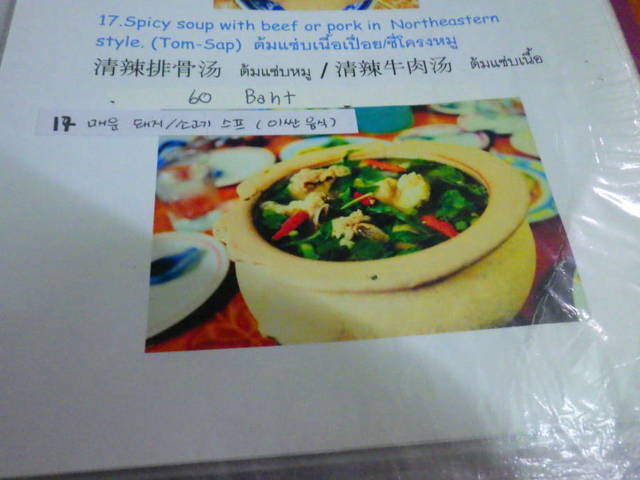 17.Spicy soup with beef or pork in Northeastern
style. (Tom-Sap) ต้มแซ่บเนื้อเปื่อย/ซี่โครงหมู
清辣排骨汤 ต้มแซ่บหมู / 清辣牛肉汤 ต้มแซ่บเนื้อ
60 Baht
17 매운 돼지/소고기 스프 (이싼음식)